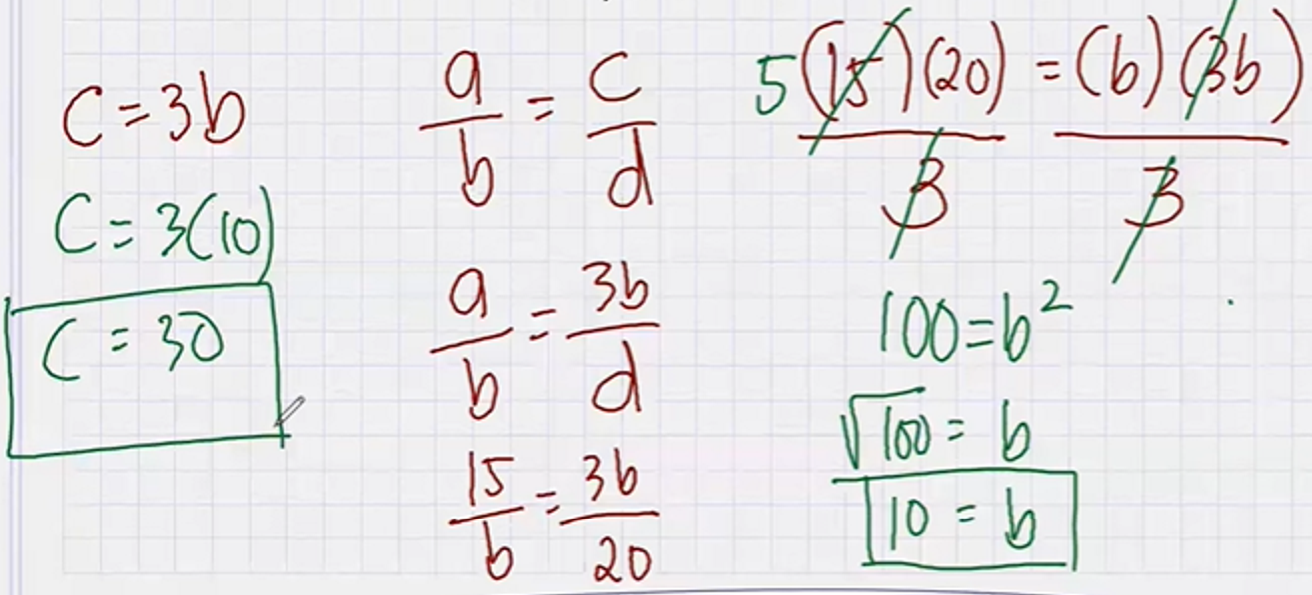 C = 3b
C = 3(10)
C = 30
a/b = c/d
a/b = 3b/d
15/b = 3b/20
5 (15)(20)/3 = (b)(3b)/3
100 = b²
√100 = b
10 = b